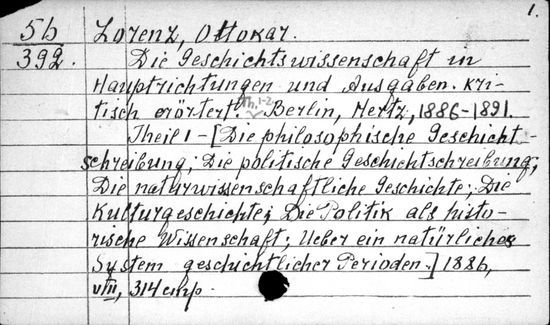 1.
5b Lorenz, Ottokar.
392. Die Geschichtswissenschaft in
Hauptrichtungen und Ausgaben. Kri-
tisch erörtert. Th. 1-2 Berlin, Hertz, 1886-1891.
Theil 1 - [Die philosophische Geschicht-
schreibung; Die politische Geschichtschreibung;
Die naturwissenschaftliche Geschichte; Die
Kulturgeschichte; Die Politik als histo-
rische Wissenschaft; Ueber ein natürliches
System geschichtlicher Perioden.] 1886,
VIII, 314